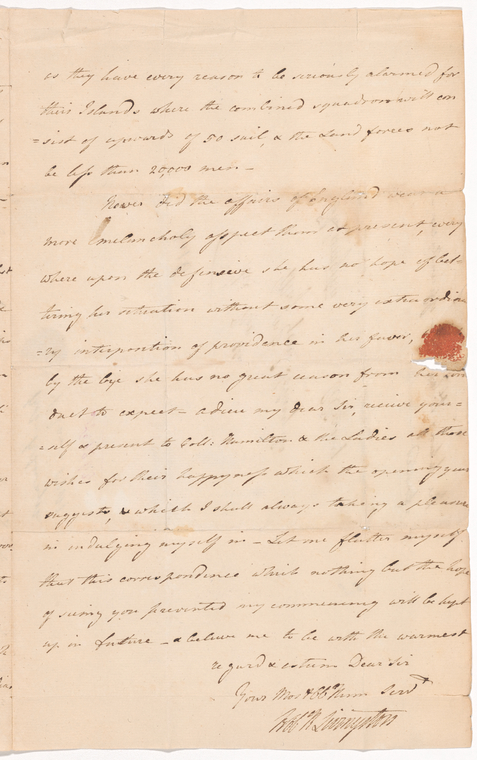 as they have every reason to be seriously alarmed for
their Islands where the combined squadron will con
=sist of upwards of 50 sail, & the Land forces not
be less than 20,000 men –
Never did the affairs of England wear a
more melancholy aspect than at present, every
where upon the defensive she has no hope of bet
tering her situation without some very extraordina
=ry interposition of providence in her favor,
by the bye she has no great reason from her con
duct to expect – adieu my Dear Sir, receive your=
=self & present to Coll: Hamilton & the Ladies all those
wishes for their happyness which the opening year
suggests, & which I shall always taking a pleasure
in indulging myself in – Let me flatter myself
that this correspondence which nothing but the hope
of seeing you prevented my commencing will be kept
up in future – & believe me to be with the warmest
regard & esteem Dear Sir
Your Most Obt Hum Servt
Robt R Livingston